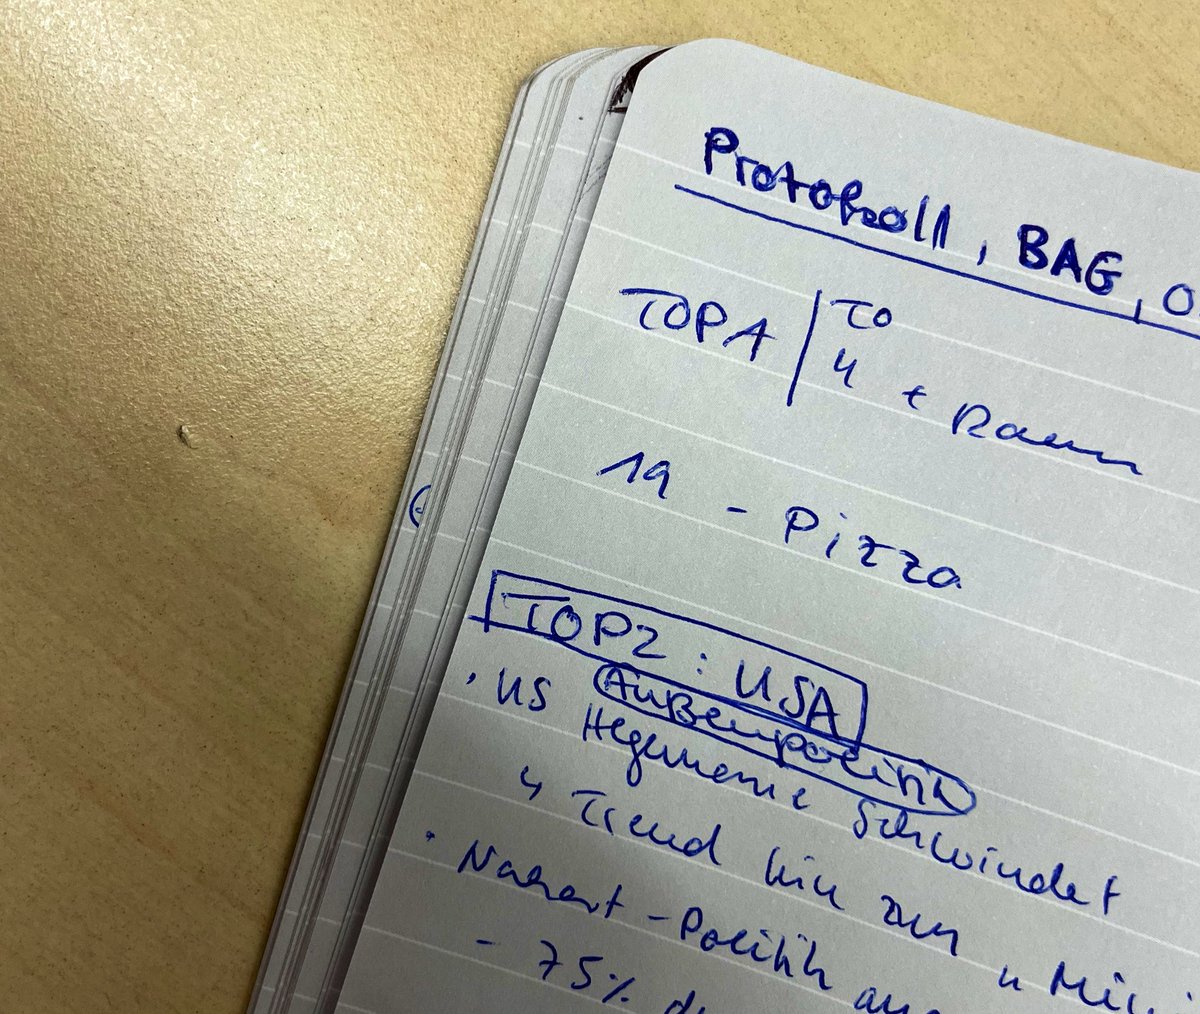 Protokoll, BAG, O
TOP 1 | TO
↳ + Raum
19 - Pizza
TOP 2 : USA
Außenpolitik
· US Hegemonie schwindet
↳ Trend hin zum "Mini
· Nahost-Politik aus
- 75%